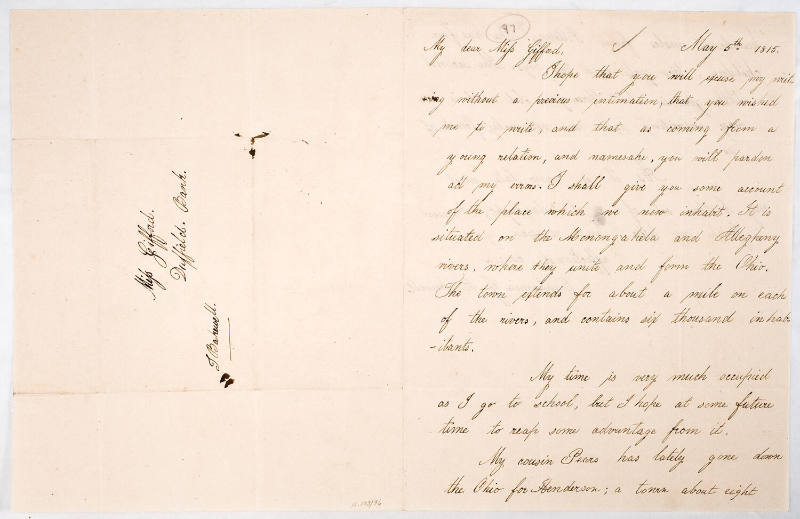 Miss Giffard.
Duffield. Bank.
T Barwell.
97
My dear Miss Giffard. May 5th 1815.
I hope that you will excuse my writ
ing without a previous intimation, that you wished
me to write, and that as coming from a
young relation, and namesake, you will pardon
all my errors. I shall give you some account
of the place which we now inhabit. It is
situated on the Monongahela and Allegheny
rivers, where they unite and form the Ohio.
The town extends for about a mile on each
of the rivers, and contains six thousand inhab
-itants.
My time is very much occupied
as I go to school, but I hope at some future
time to reap some advantage from it.
My cousin Pears has lately gone down
the Ohio for Henderson; a town about eight